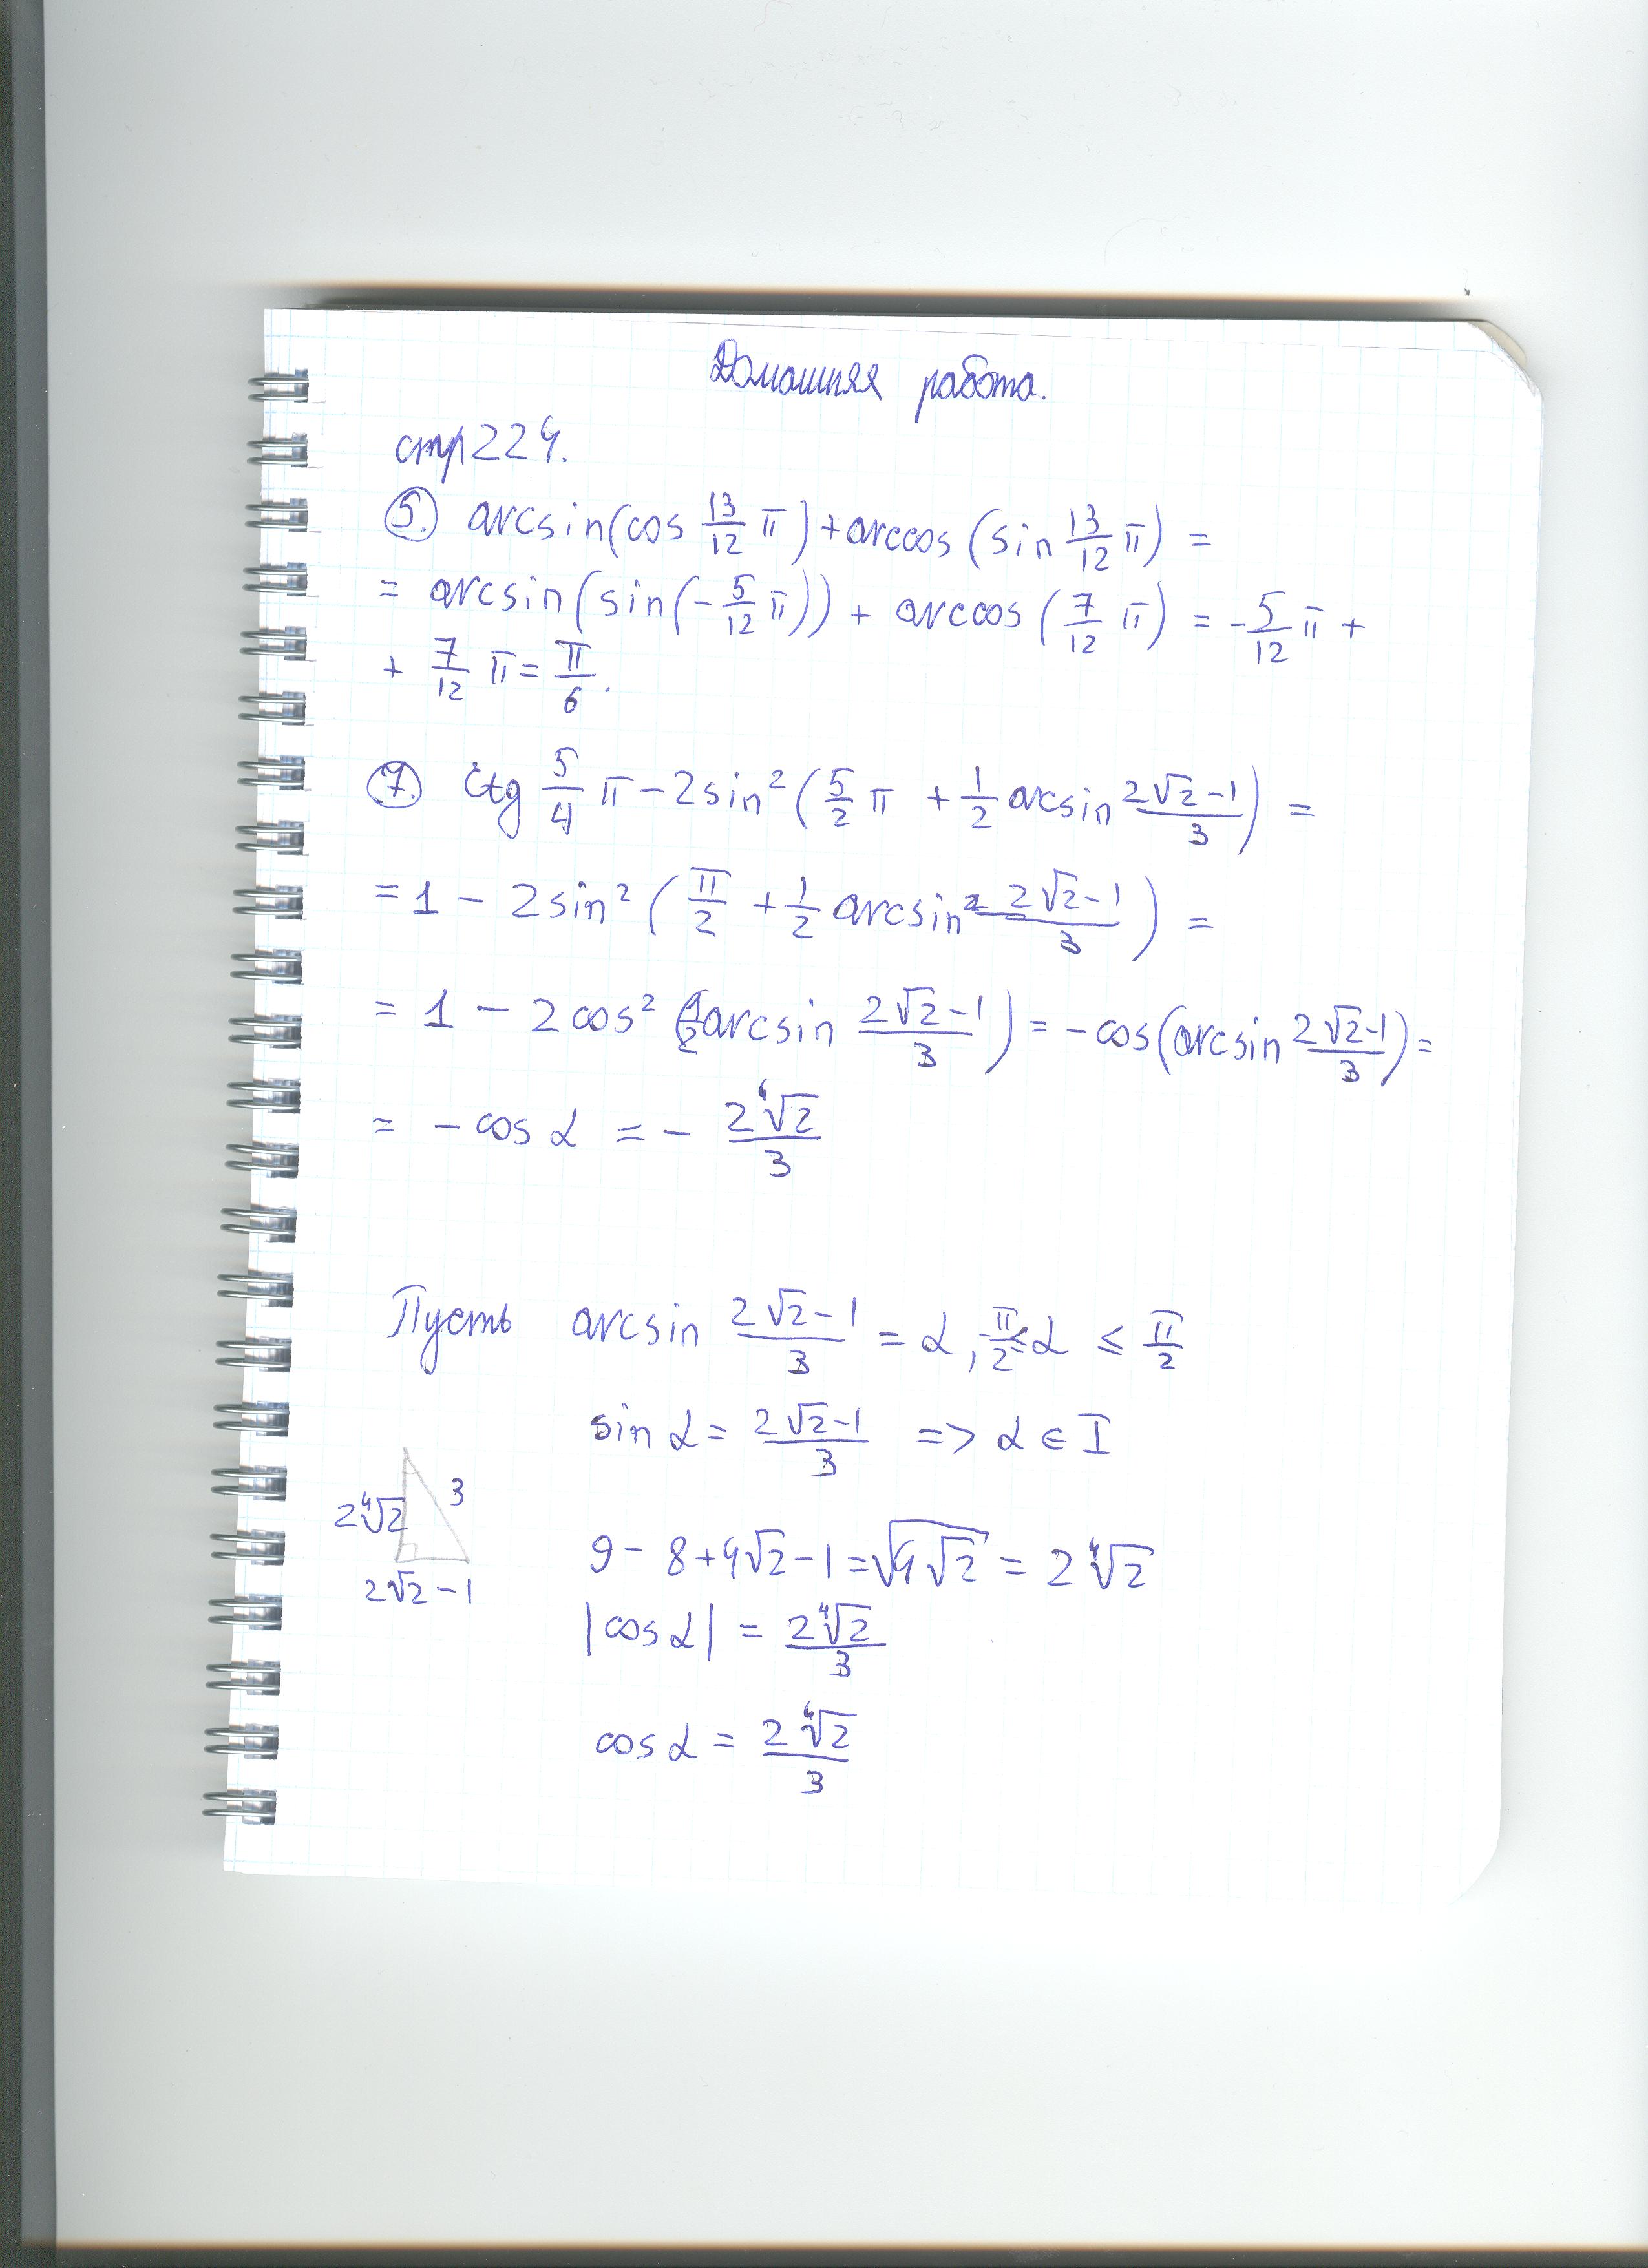 Домашняя работа.
стр 224.
5. arcsin(cos 13/12 π) + arccos(sin 13/12 π) =
= arcsin(sin(-5/12 π)) + arccos(7/12 π) = -5/12 π +
+ 7/12 π = π/6.
7. ctg 5/4 π - 2sin²(5/2 π + 1/2 arcsin (2√2-1)/3) =
= 1 - 2sin²(π/2 + 1/2 arcsin (2√2-1)/3) =
= 1 - 2cos²(1/2 arcsin (2√2-1)/3) = -cos(arcsin (2√2-1)/3) =
= -cos α = - 2⁴√2/3
Пусть arcsin (2√2-1)/3 = α, -π/2 ≤ α ≤ π/2
sin α = (2√2-1)/3 => α ∈ I
3
2⁴√2
2√2-1
9 - 8 + 4√2 - 1 = √(4√2) = 2⁴√2
|cos α| = 2⁴√2/3
cos α = 2⁴√2/3